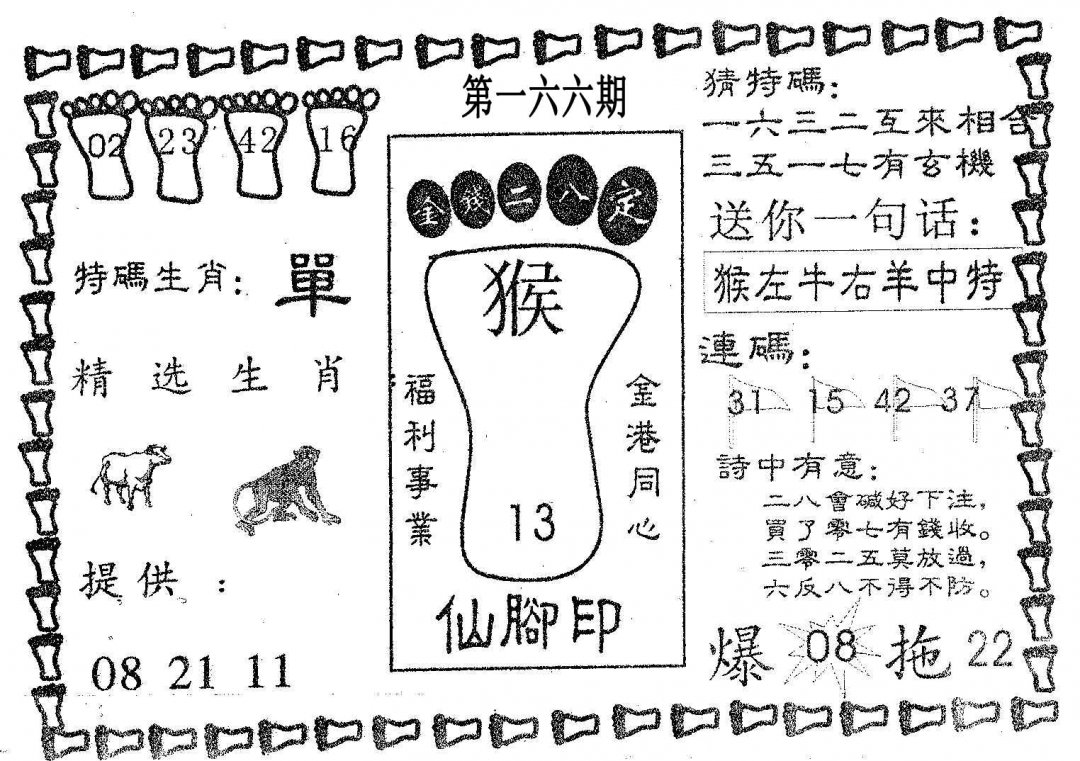 第一六六期
02 23 42 16
特碼生肖：單
精选生肖
提供：
08 21 11
金錢二八定
猴
福利事業
金港同心
13
仙腳印
猜特碼：
一六三二互來相合
三五一七有玄機
送你一句话：
猴左牛右羊中特
連碼：
31 15 42 37
詩中有意：
二八會碱好下注，
買了零七有錢收。
三零二五莫放過，
六反八不得不防。
爆 08 拖 22